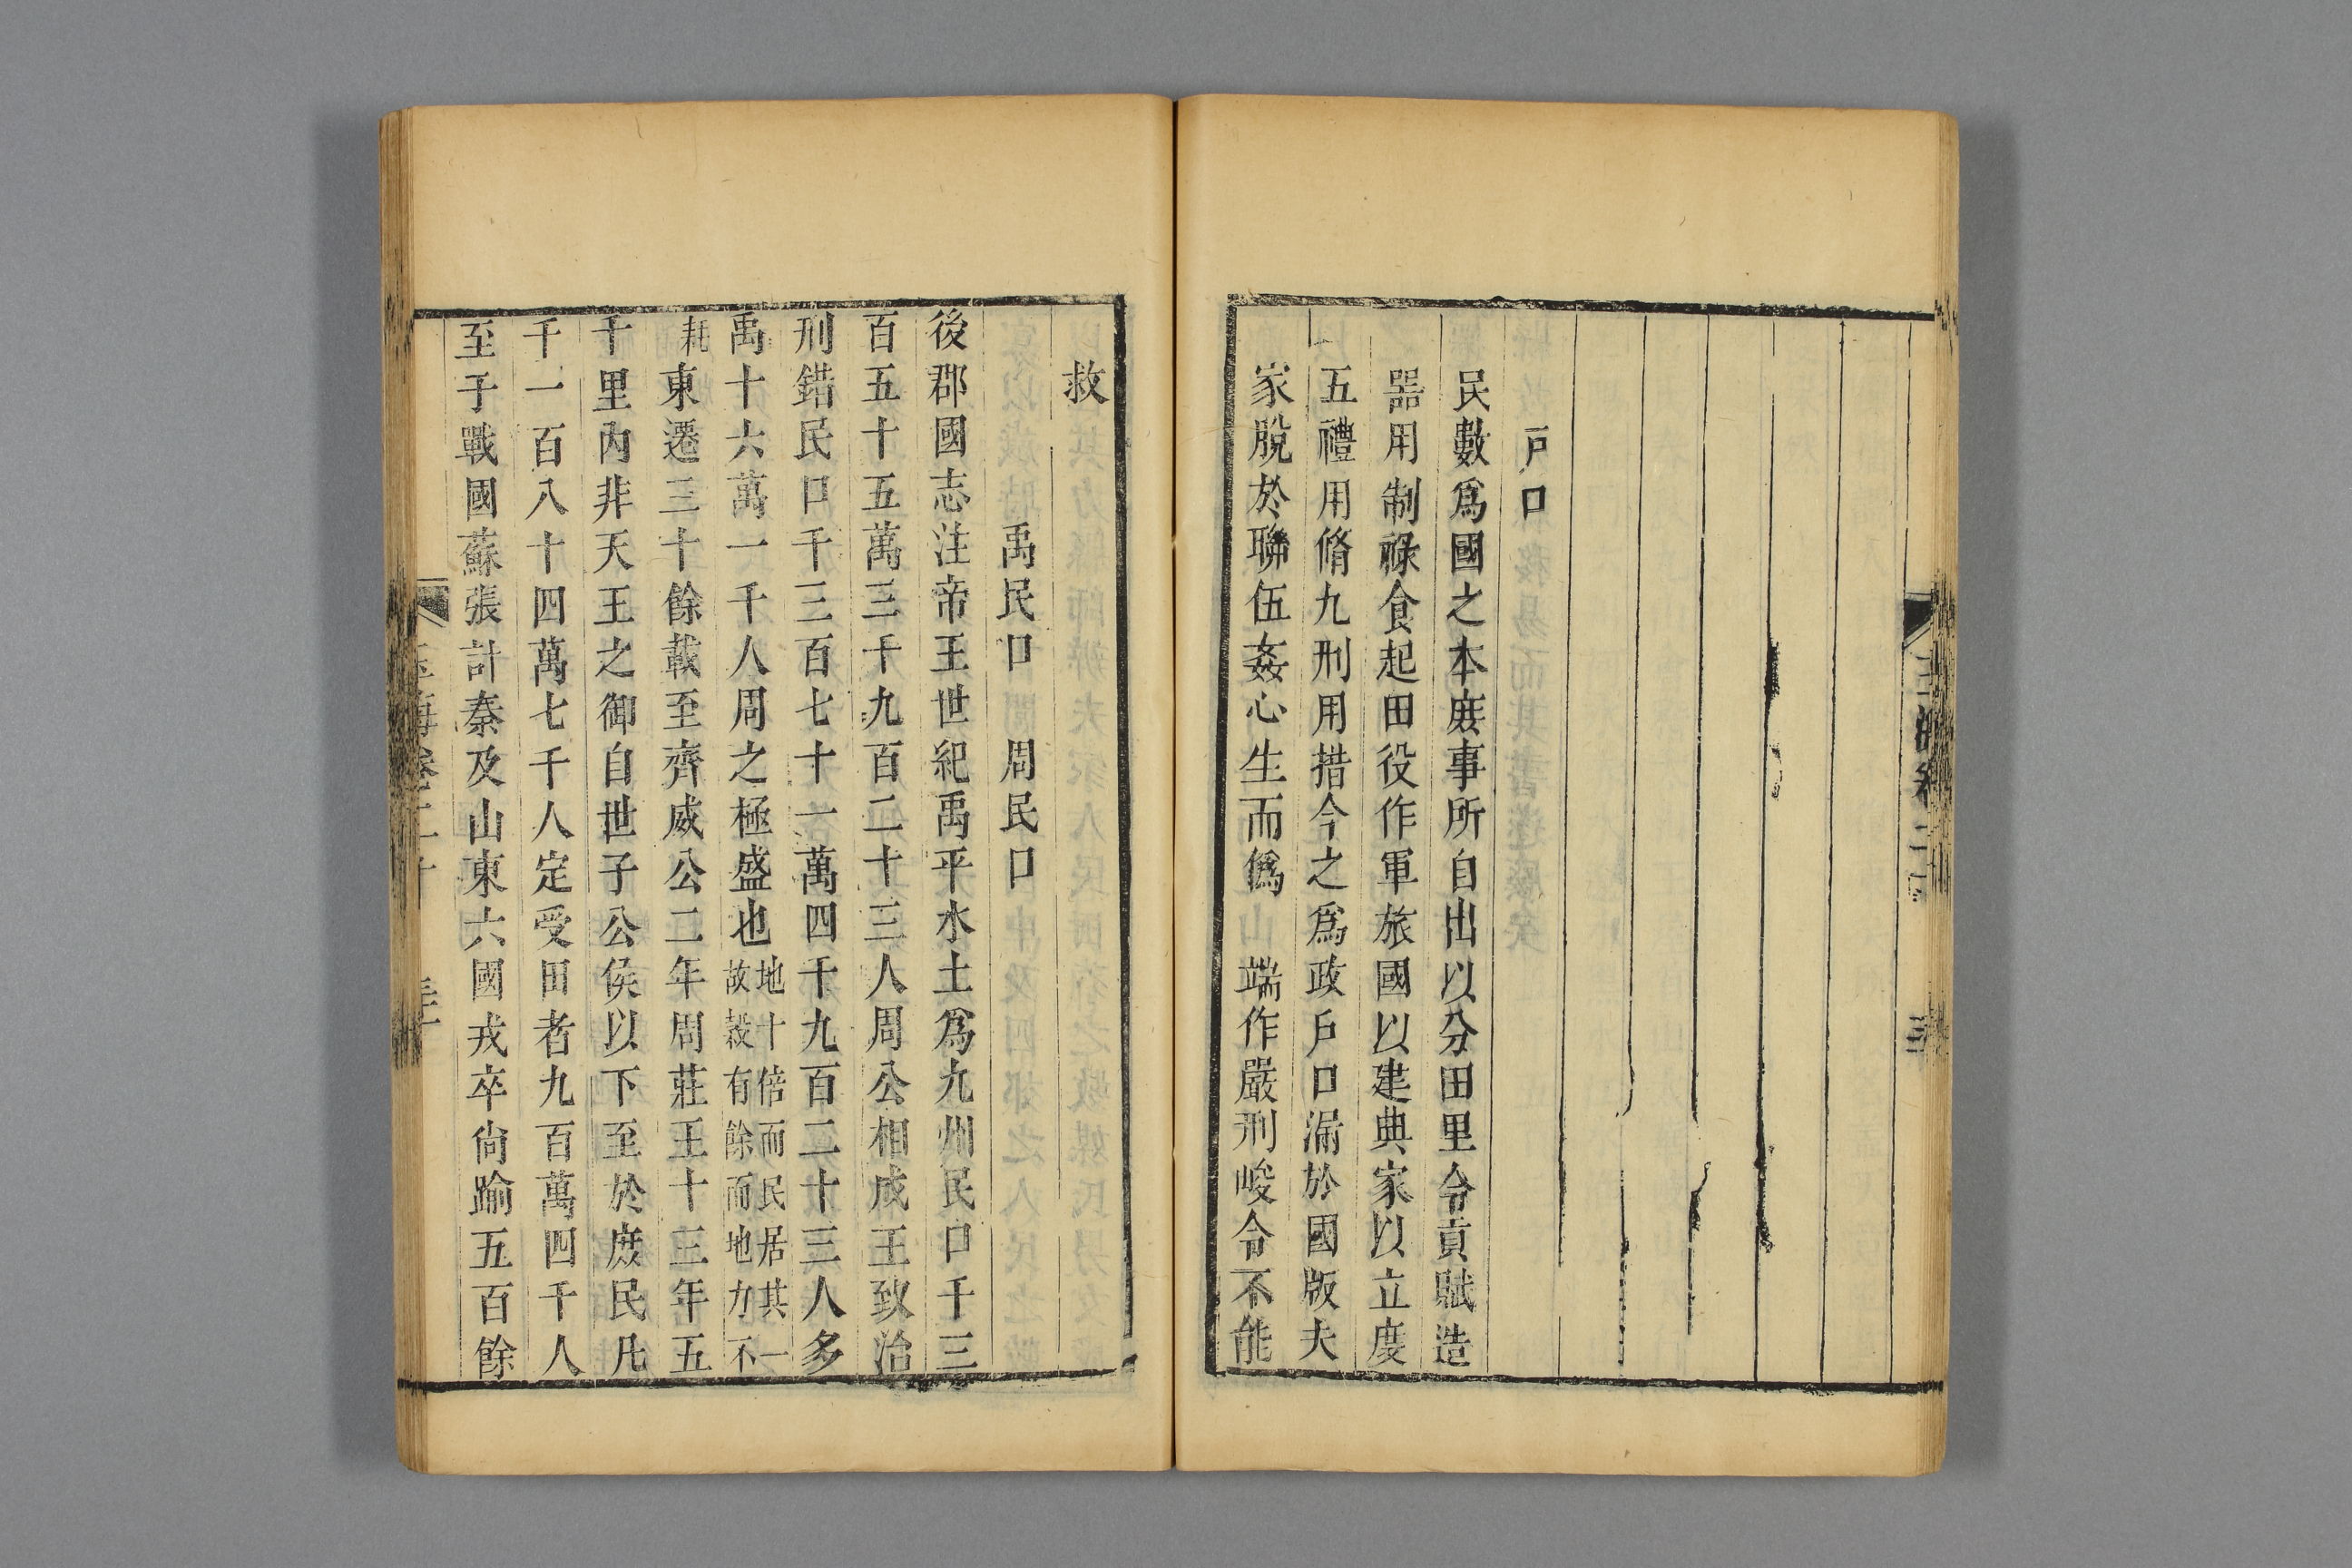 戸口
民數爲國之本庻事所自出以分田里令貢賦造
器用制祿食起田役作軍旅國以建典家以立度
五禮用脩九刑用措今之爲政戸口漏於國版夫
家脫於聯伍姦心生而僞端作嚴刑峻令不能
救
禹民口 周民口
後郡國志注帝王世紀禹平水土爲九州民口千三
百五十五萬三千九百二十三人周公相成王致治
刑錯民口千三百七十一萬四千九百二十三人多
禹十六萬一千人周之極盛也地十倍而民居其一故穀有餘而地力不
耗東遷三十餘載至齊威公二年周莊王十三年五
千里內非天王之御自世子公侯以下至於庻民凡
千一百八十四萬七千人定受田者九百萬四千人
至于戰國蘇張計秦及山東六國戎卒尙踰五百餘